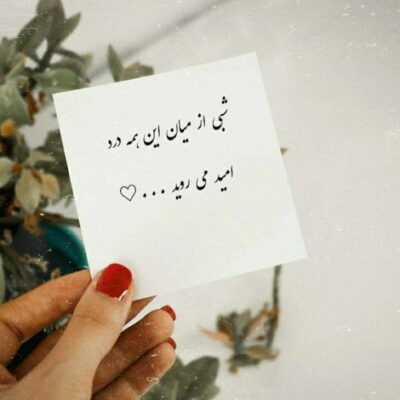 شبی از میان این همه درد
امید می روید ...♡